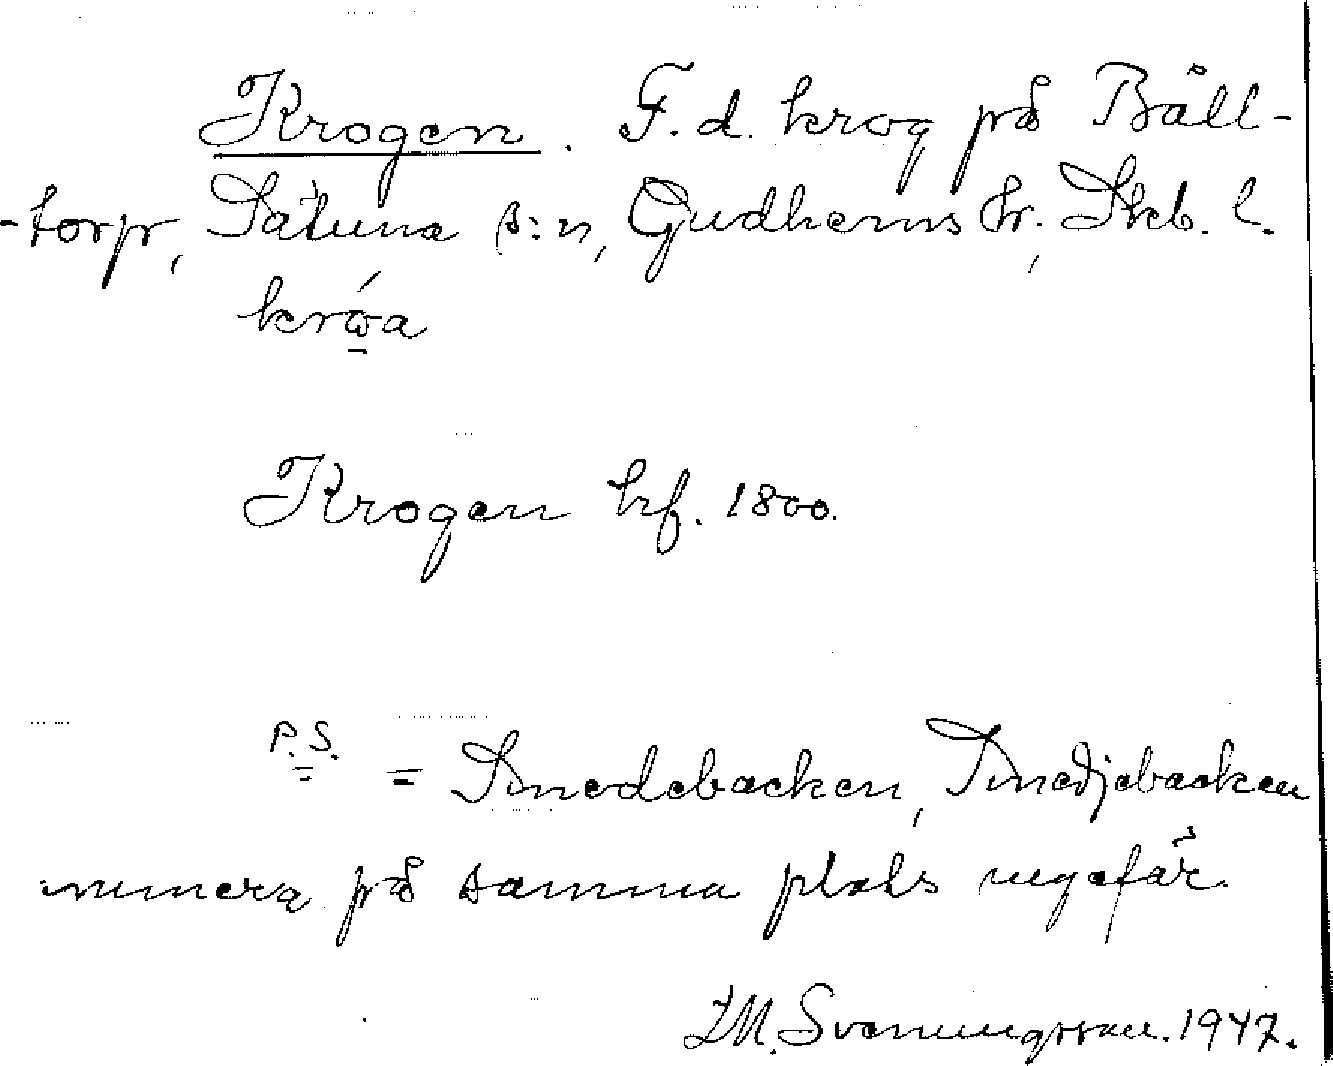 Krogen. F.d. krog på Bäll-
-torp, Sätuna s:n, Gudhems hr., Skb. l.
krώ̱a
Krogen hf. 1800.
P.S. = Smedebacken, Smedjebacken
numera på samma plats ungefär.
I.M. Svenningsson. 1947.